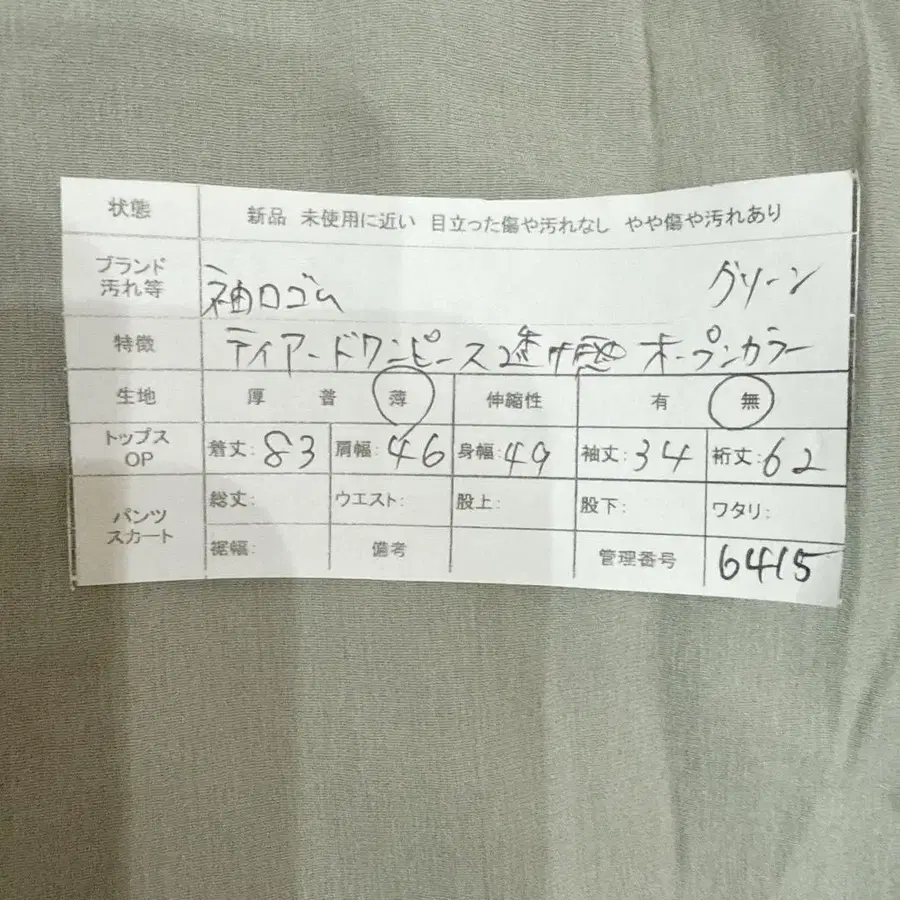 状態 新品 未使用に近い 目立った傷や汚れなし やや傷や汚れあり
ブランド 汚れ等 袖口ゴム グリーン
特徴 ティアードワンピース 透け感 オープンカラー
生地 厚 普 薄 伸縮性 有 無
トップス OP 着丈:83 肩幅:46 身幅:49 袖丈:34 裄丈:62
パンツ スカート 総丈: ウエスト: 股上: 股下: ワタリ:
裾幅: 備考 管理番号 6415